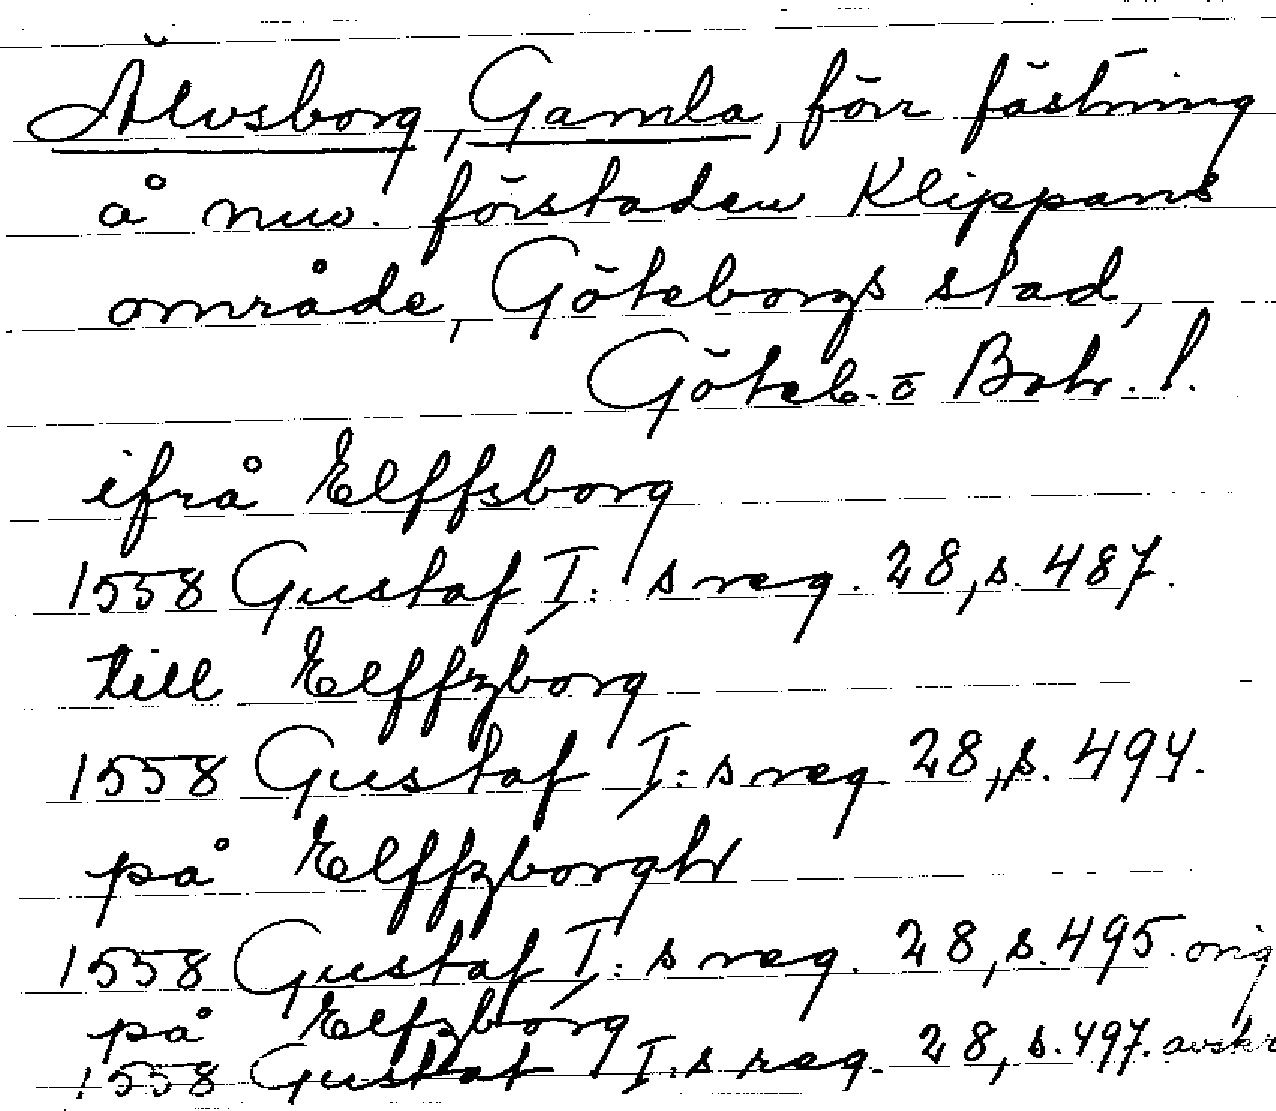 Älvsborg, Gamla, förr fästning
å nuv. förstaden Klippans
område, Göteborgs stad,
Göteb. o Boh. l.
ifrå Elffsborg
1558 Gustaf I:s reg. 28, s. 487.
till Elffzborg
1558 Gustaf I:s reg. 28, s. 494.
på Elffzborgh
1558 Gustaf I:s reg. 28, s. 495. orig
på Elfzborg
1558 Gustaf I:s reg. 28, s. 497. avskr